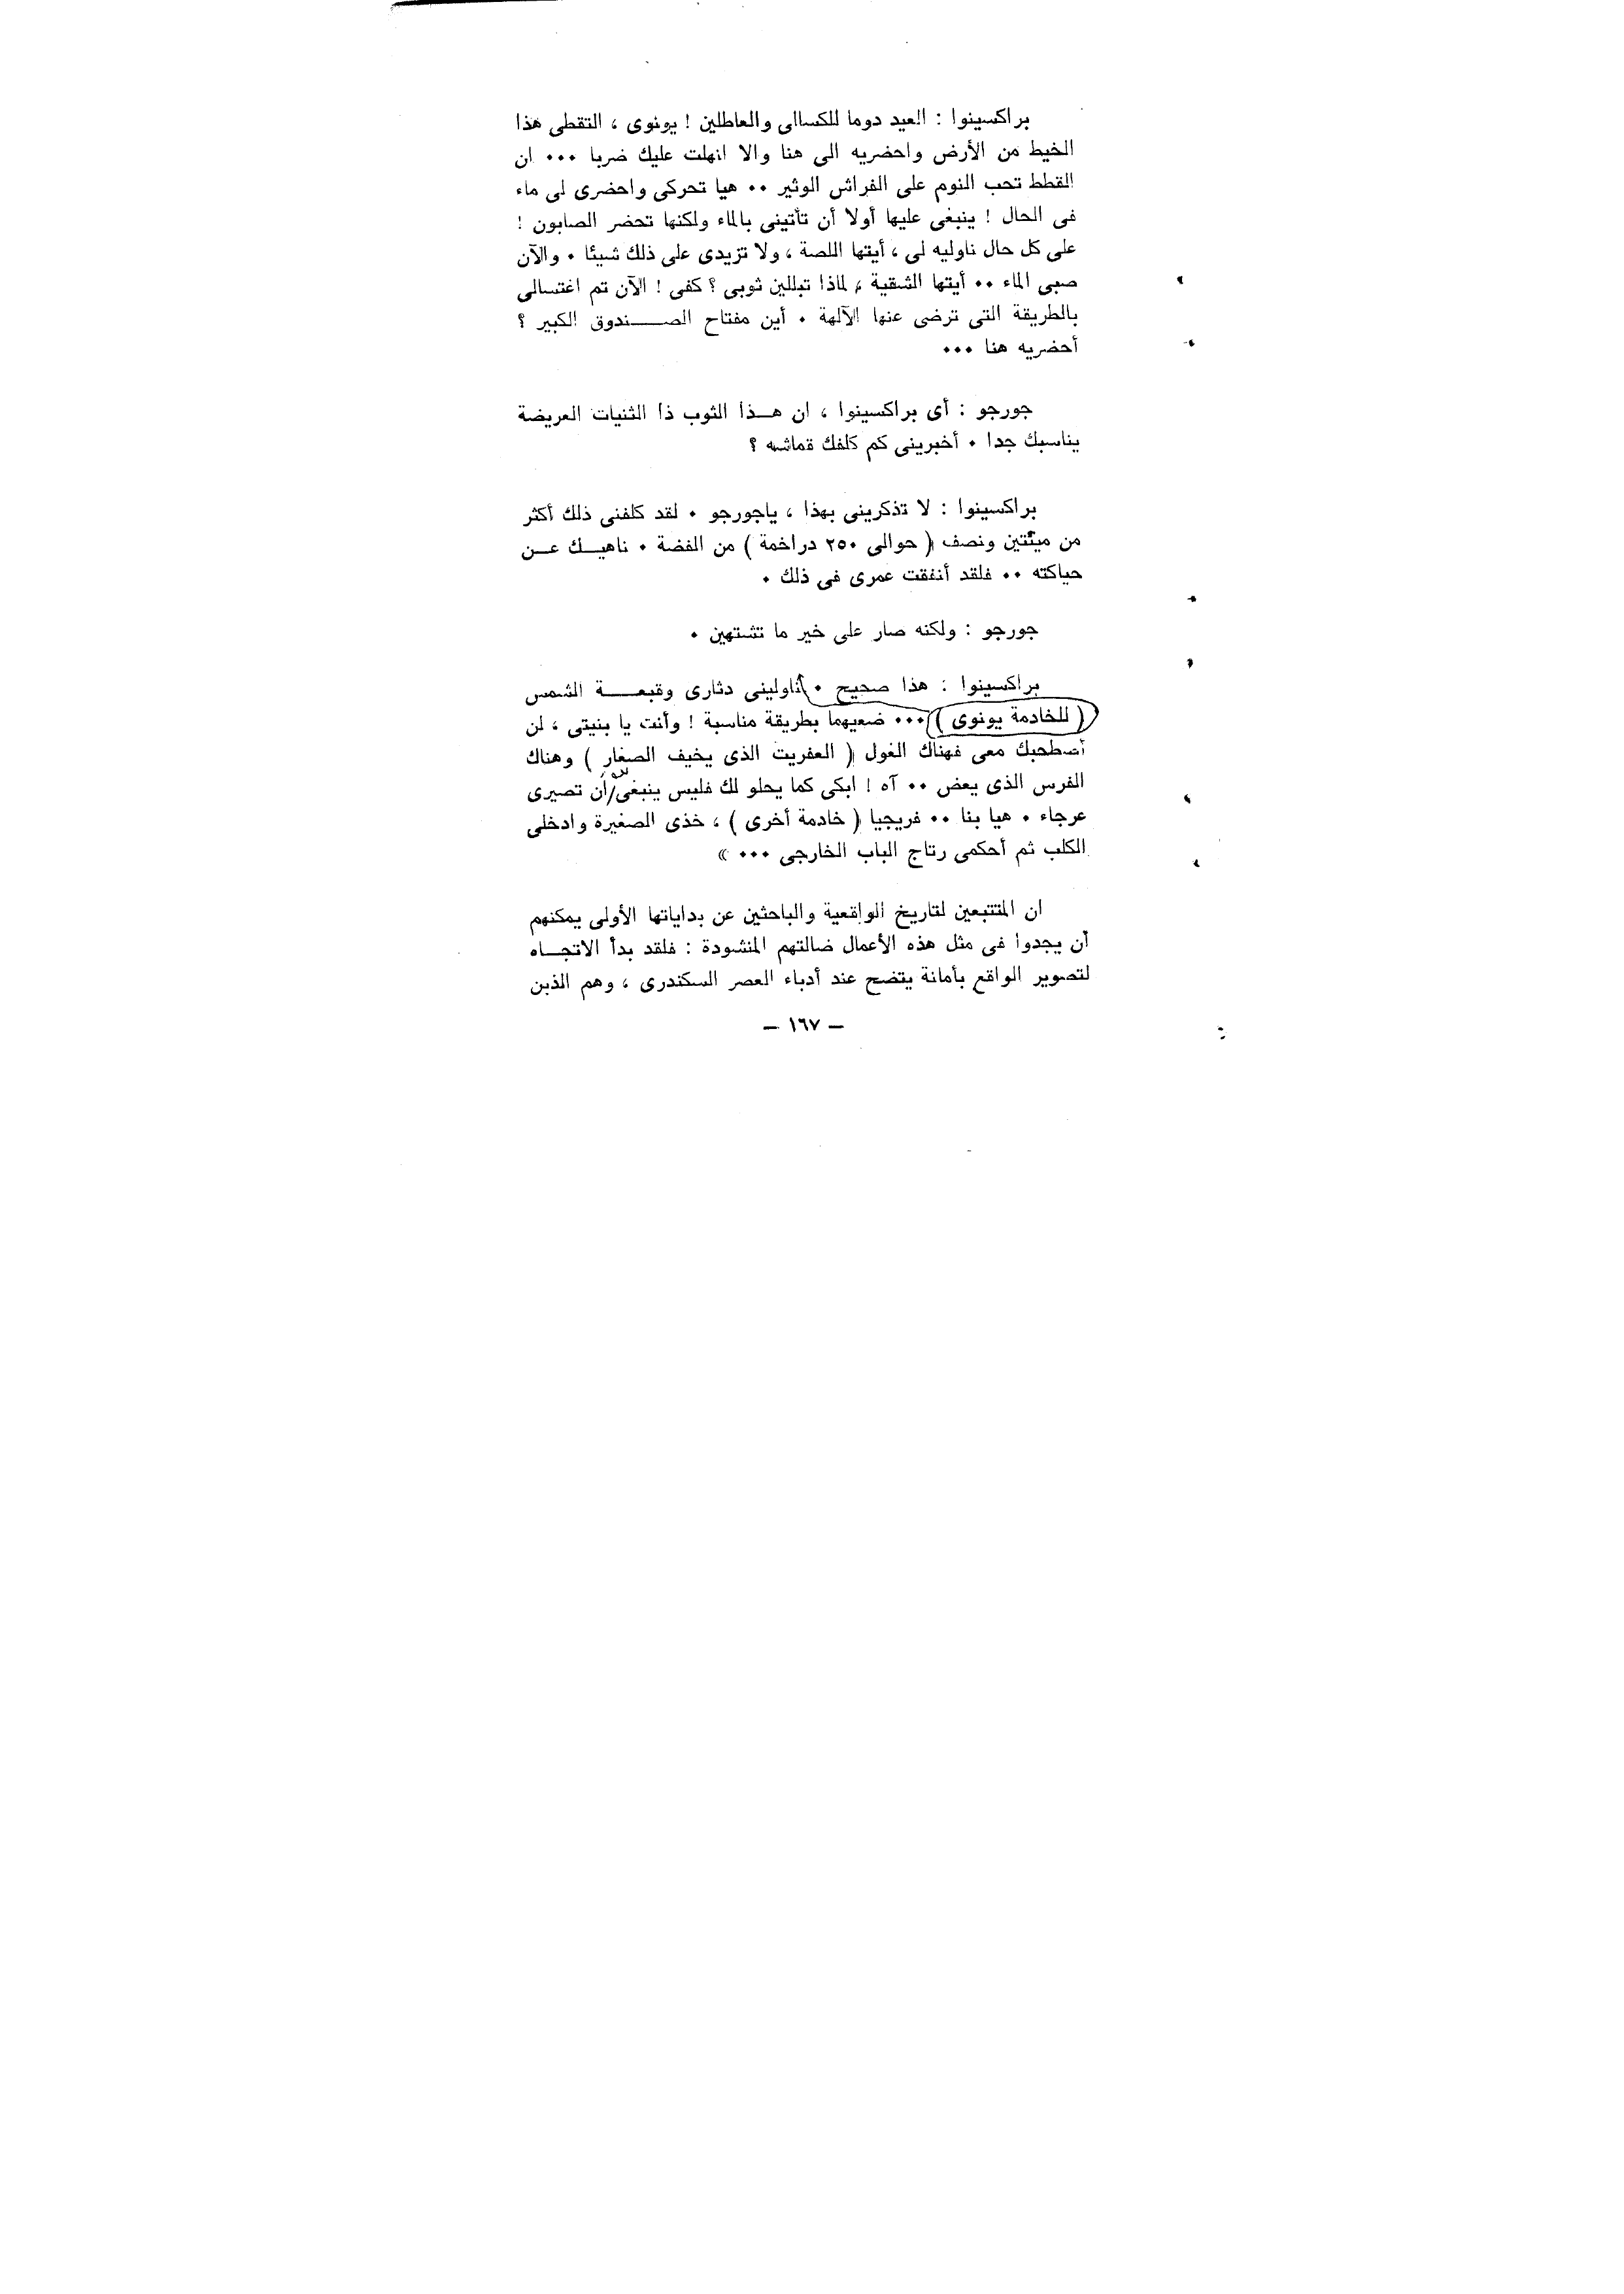 براكسينوا : العيد دوما للكسالى والعاطلين ! يونوى ، التقطى هذا
الخيط من الأرض واحضريه الى هنا والا انهلت عليك ضربا ٠٠٠ ان
القطط تحب النوم على الفراش الوثير ٠٠ هيا تحركى واحضرى لى ماء
فى الحال ! ينبغى عليها أولا أن تأتينى بالماء ولكنها تحضر الصابون !
على كل حال ناوليه لى ، أيتها اللصة ، ولا تزيدى على ذلك شيئا ٠ والآن
صبى الماء ٠٠ أيتها الشقية ، لماذا تبللين ثوبى ؟ كفى ! الآن تم اغتسالى
بالطريقة التى ترضى عنها الآلهة ٠ أين مفتاح الصـــــندوق الكبير ؟
أحضريه هنا ٠٠٠
جورجو : أى براكسينوا ، ان هـــذا الثوب ذا الثنيات العريضة
يناسبك جدا ٠ أخبرينى كم كلفك قماشه ؟
براكسينوا : لا تذكرينى بهذا ، ياجورجو ٠ لقد كلفنى ذلك أكثر
من ميئتين ونصف ( حوالى ٢٥٠ دراخمة ) من الفضة ٠ ناهيـــك عـــن
حياكته ٠٠ فلقد أنفقت عمرى فى ذلك ٠
جورجو : ولكنه صار على خير ما تشتهين ٠
براكسينوا : هذا صحيح ٠ ناولينى دثارى وقبعـــــة الشمس
( للخادمة يونوى ) ٠٠٠ ضعيهما بطريقة مناسبة ! وأنت يا بنيتى ، لن
أصطحبك معى فهناك الغول ( العفريت الذى يخيف الصغار ) وهناك
الفرس الذى يعض ٠٠ آه ! ابكى كما يحلو لك فليس ينبغى أن تصيرى
عرجاء ٠ هيا بنا ٠٠ فريجيا ( خادمة أخرى ) ، خذى الصغيرة وادخلى
الكلب ثم أحكمى رتاج الباب الخارجى ٠٠٠ »
ان المتتبعين لتاريخ الواقعية والباحثين عن بداياتها الأولى يمكنهم
أن يجدوا فى مثل هذه الأعمال ضالتهم المنشودة : فلقد بدأ الاتجـــاه
لتصوير الواقع بأمانة يتضح عند أدباء العصر السكندرى ، وهم الذين
– ١٦٧ –